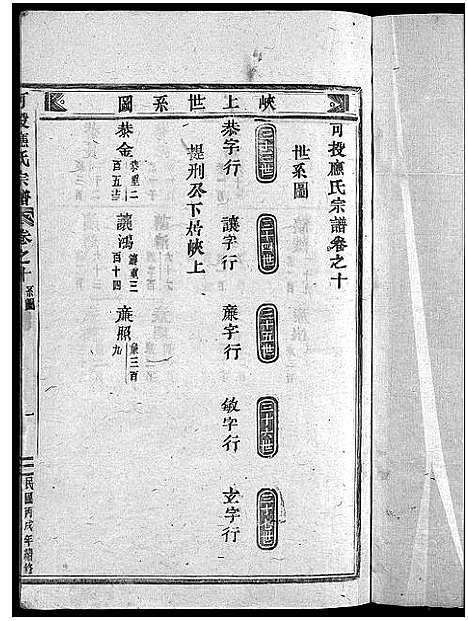 可投應氏宗譜卷之十
世系圖
三十三世 三十四世 三十五世 三十六世 三十七世
恭字行 讓字行 廉字行 敏字行 玄字行
提刑公下居峽上
恭金 恭重二百五吉 讓鴻 讓重三百十四 廉照 廉三百九
峽上世系圖
可投應氏宗譜 卷之十 系圖 一 民國丙戌年續修